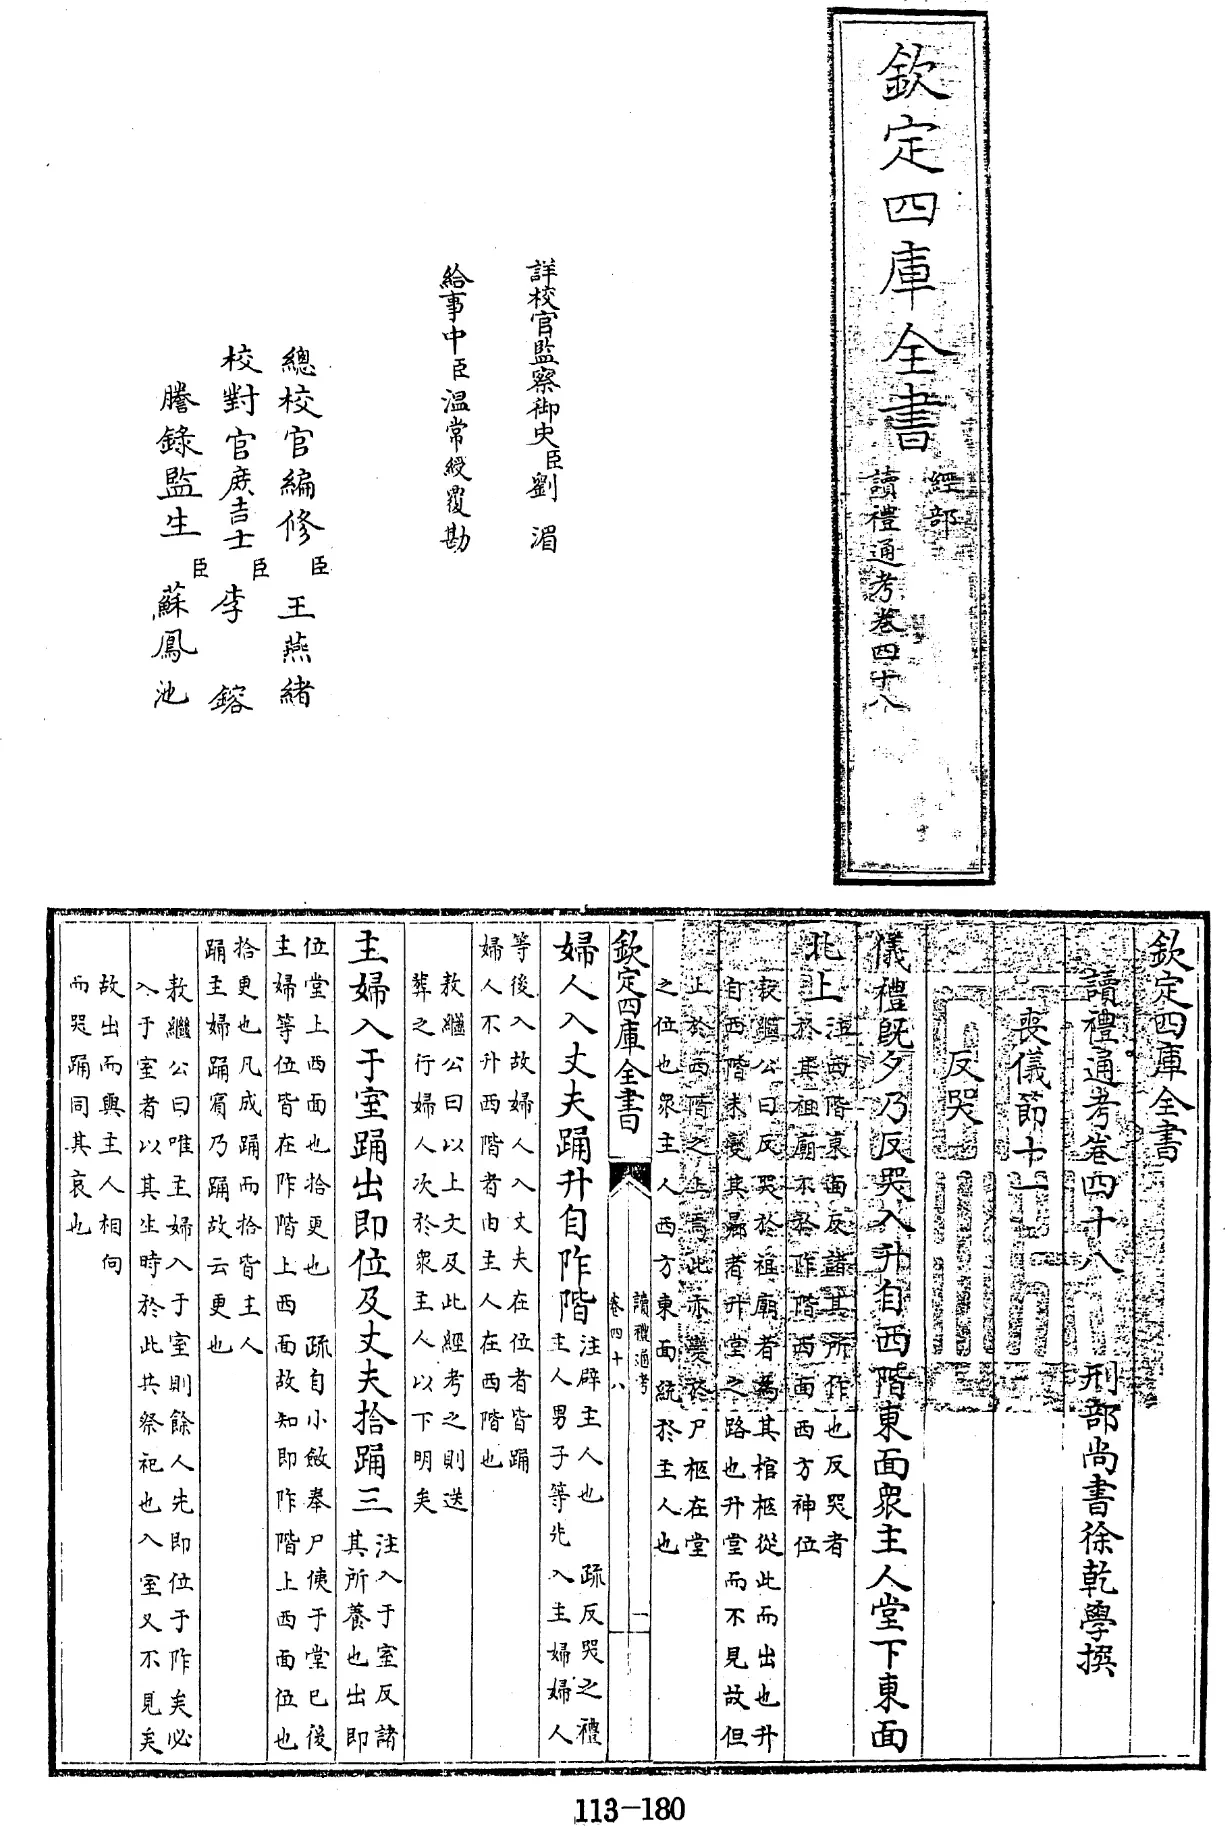 欽定四庫全書
經部
讀禮通考卷四十八
詳校官監察御史臣劉湄
給事中臣溫常綬覆勘
總校官編修臣王燕緒
校對官庶吉士臣李鎔
謄錄監生臣蘇鳳池
欽定四庫全書
讀禮通考卷四十八 刑部尚書徐乾學撰
喪儀節十一
反哭
儀禮既夕乃反哭入升自西階東面眾主人堂下東面
北上
注西階東面反諸其所作也反哭者
於其祖廟不於阼階西面西方神位
敖繼公曰反哭於祖廟者為其棺柩從此而出也升
自西階未變其為者升堂之路也升堂而不見故但
止於西階之上焉此亦變於尸柩在堂
之位也眾主人西方東面統於主人也
欽定四庫全書
讀禮通考
卷四十八
一
婦人入丈夫踊升自阼階
注辟主人也 疏反哭之禮
主人男子等先入主婦婦人
等後入故婦人入丈夫在位者皆踊
婦人不升西階者由主人在西階也
敖繼公曰以上文及此經考之則送
葬之行婦人次於眾主人以下明矣
主婦入于室踊出即位及丈夫拾踊三
注入于室反諸
其所養也出即
位堂上西面也拾更也 疏自小斂奉尸侇于堂已後
主婦等位皆在阼階上西面故知即阼階上西面位也
拾更也凡成踊而拾皆主人
踊主婦踊賓乃踊故云更也
敖繼公曰唯主婦入于室則餘人先即位于阼矣必
入于室者以其生時於此共祭祀也入室又不見矣
故出而與主人相向
而哭踊同其哀也
113-180